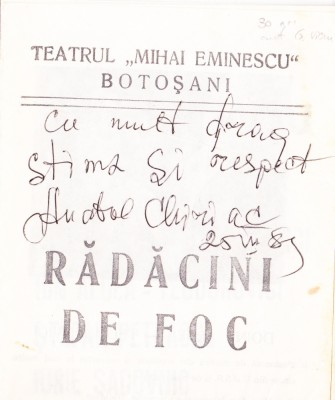 TEATRUL „MIHAI EMINESCU"
BOTOŞANI
cu mult drag
stima şi respect
Anatol Chiriac
RĂDĂCINI
DE FOC